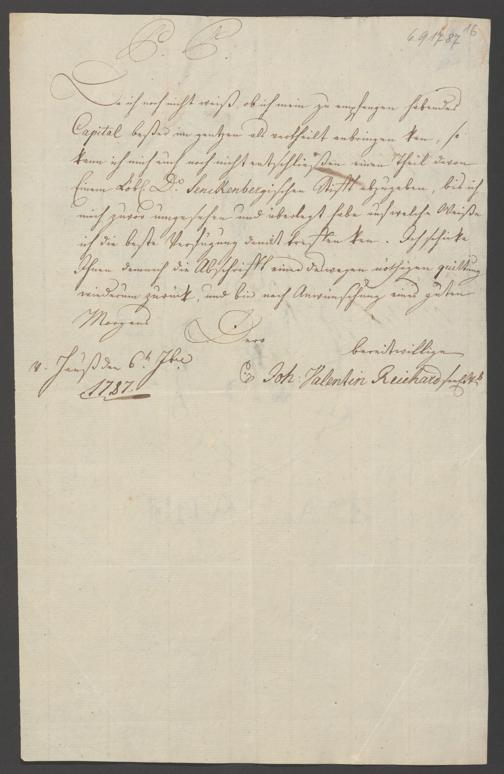 6 9 1787 16
P. P.
Da ich noch nicht weiß ob ich mein zu empfangen habendes
Capital beßer im gantzen als vertheilt anbringen kan, so
kann ich mich auch noch nicht entschließen einen Theil davon
Einem Löbl. Dr. Senckenbergischen Stifft abzugeben, bis ich
mich zuvor umgesehen und überlegt habe auf welche Weiße
ich die beste Verfügung damit treffen kan. Ich schicke
Ihnen demnach die Abschrifft einer deswegen nöthigen quittung
wiederum zurück, und bin nach Anwünschung eines guten
Morgens
Dero
bereitwillige
v. Hauß den 6t. 7bre
1787.
Joh: Valentin Reichard